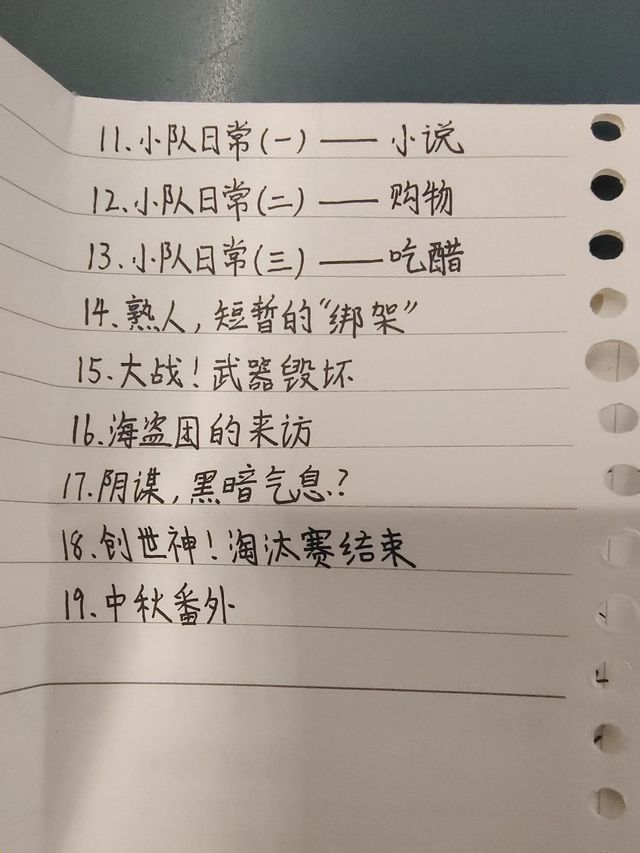 11.小队日常(一)——小说
12.小队日常(二)——购物
13.小队日常(三)——吃醋
14.熟人,短暂的“绑架”
15.大战!武器毁坏
16.海盗团的来访
17.阴谋,黑暗气息?
18.创世神!淘汰赛结束
19.中秋番外